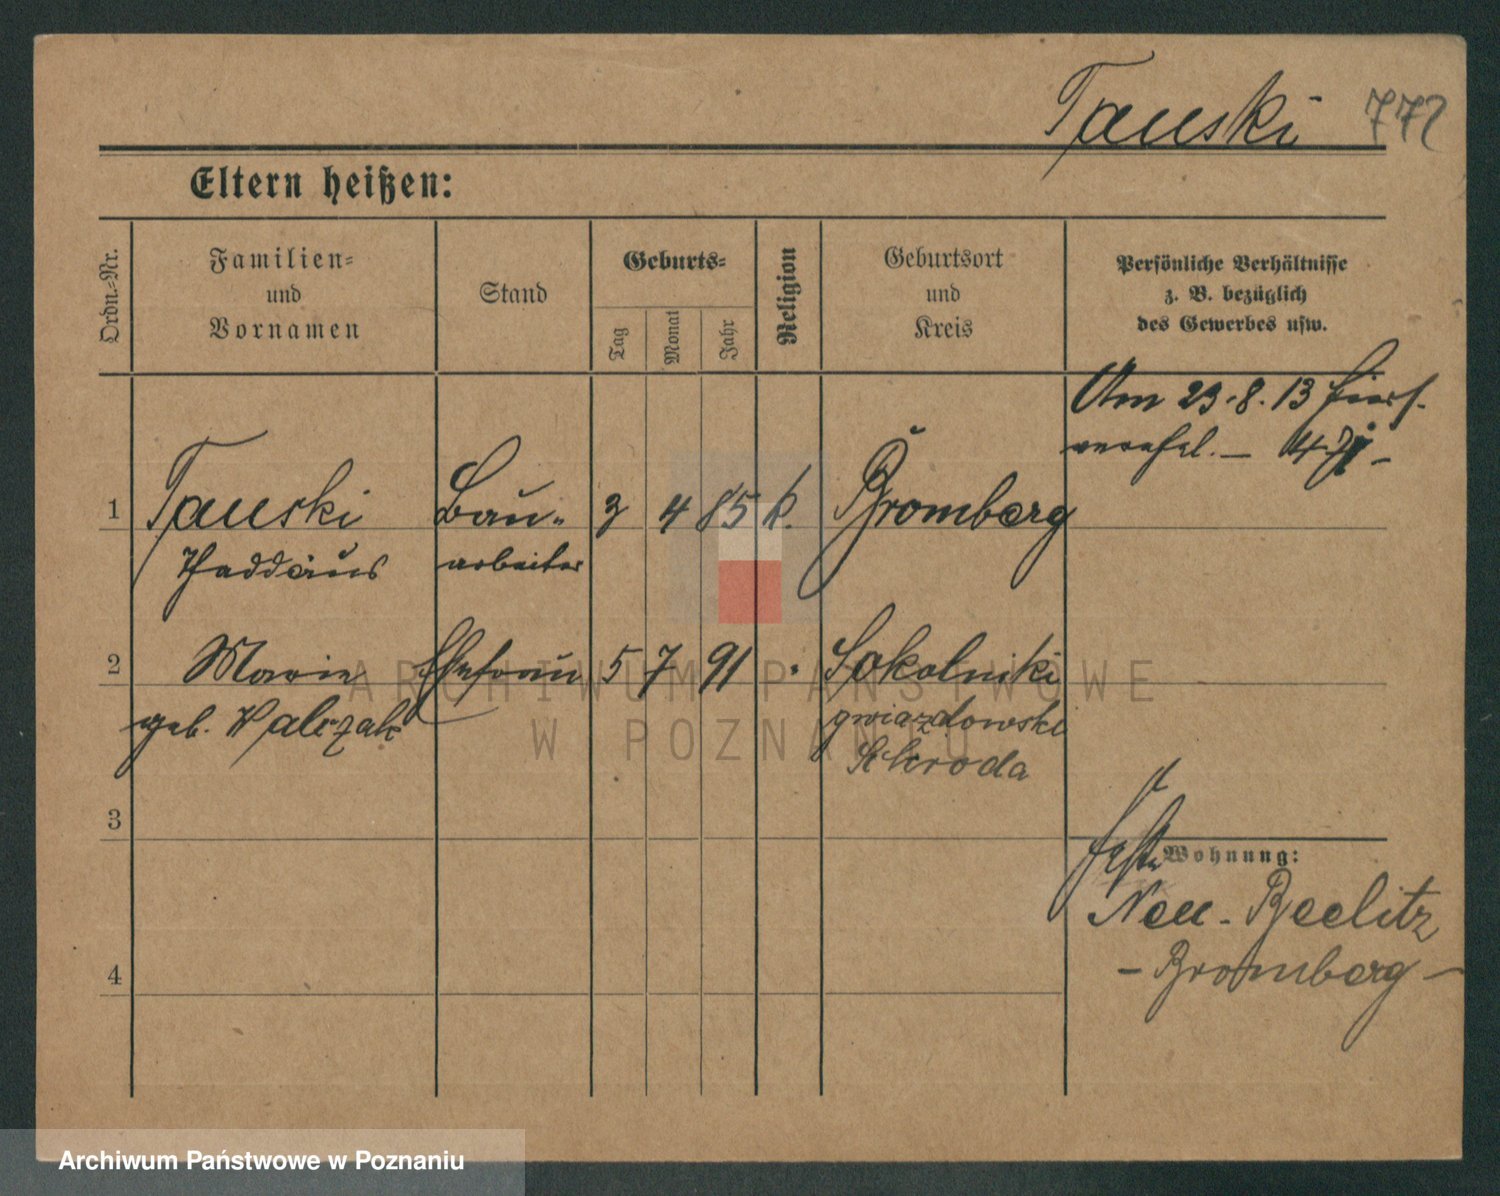 Tauski 772
Eltern heißen:
Ordn.-Nr.
Familien-
und
Vornamen
Stand
Geburts-
Tag
Monat
Jahr
Religion
Geburtsort
und
Kreis
Persönliche Verhältnisse
z. B. bezüglich
des Gewerbes usw.
Am 23.8.13 hier
1 Tauski Bau- 3 4 85 k. Bromberg
Thaddäus arbeiter
2 Marie Ehefrau 5 7 91 Sokolniki
geb. Walczak gwiazdowski
Schroda
3
Wohnung:
Neu-Beelitz
- Bromberg -
4
ARCHIWUM PAŃSTWOWE
W POZNANIU
Archiwum Państwowe w Poznaniu